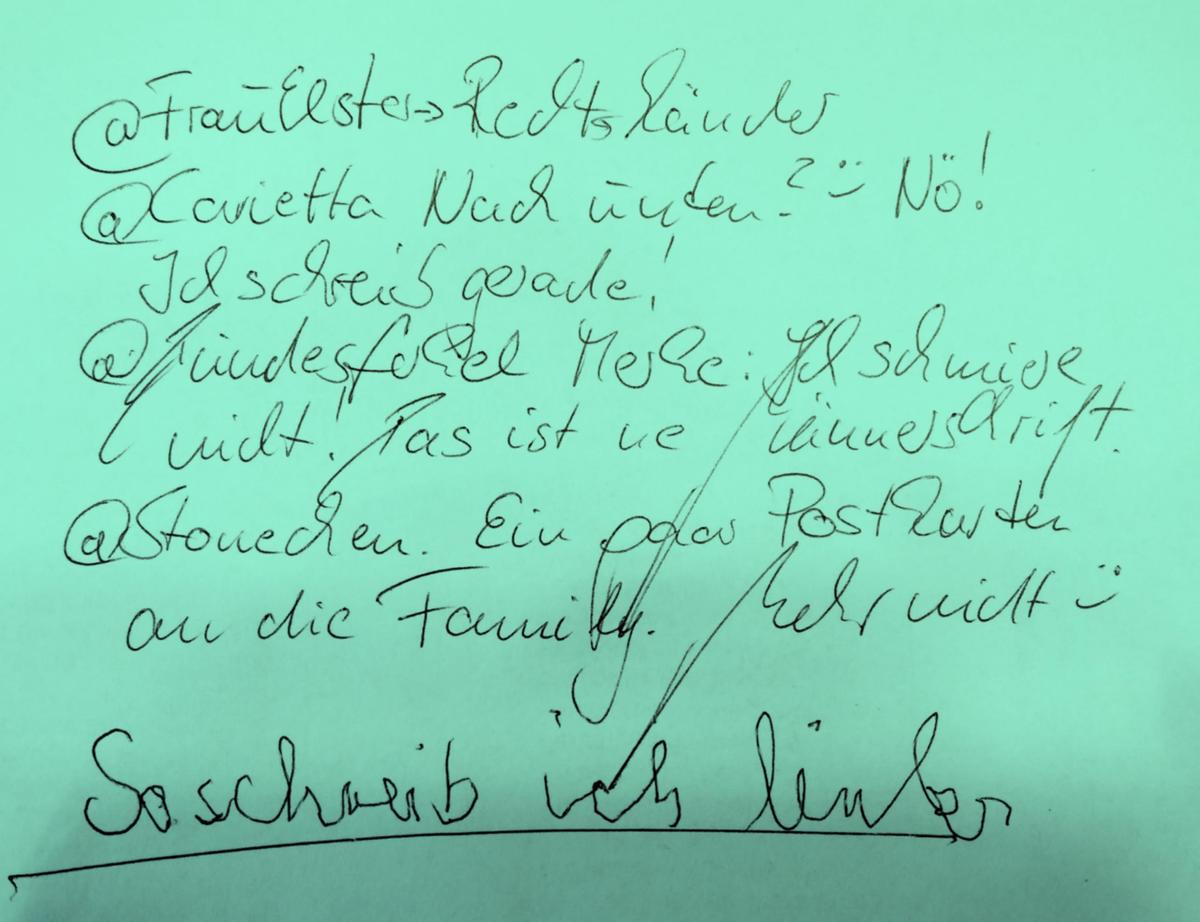 @FrauElster→Rechtshänder
@Carietta Nach unten? :) Nö!
Ich schreib gerade!
@Hundesfokel Merke: Ich schmiere
nicht! Das ist ne Männerschrift.
@Stonechen. Ein paar Postkarten
an die Family. Mehr nicht :)
So schreib ich links